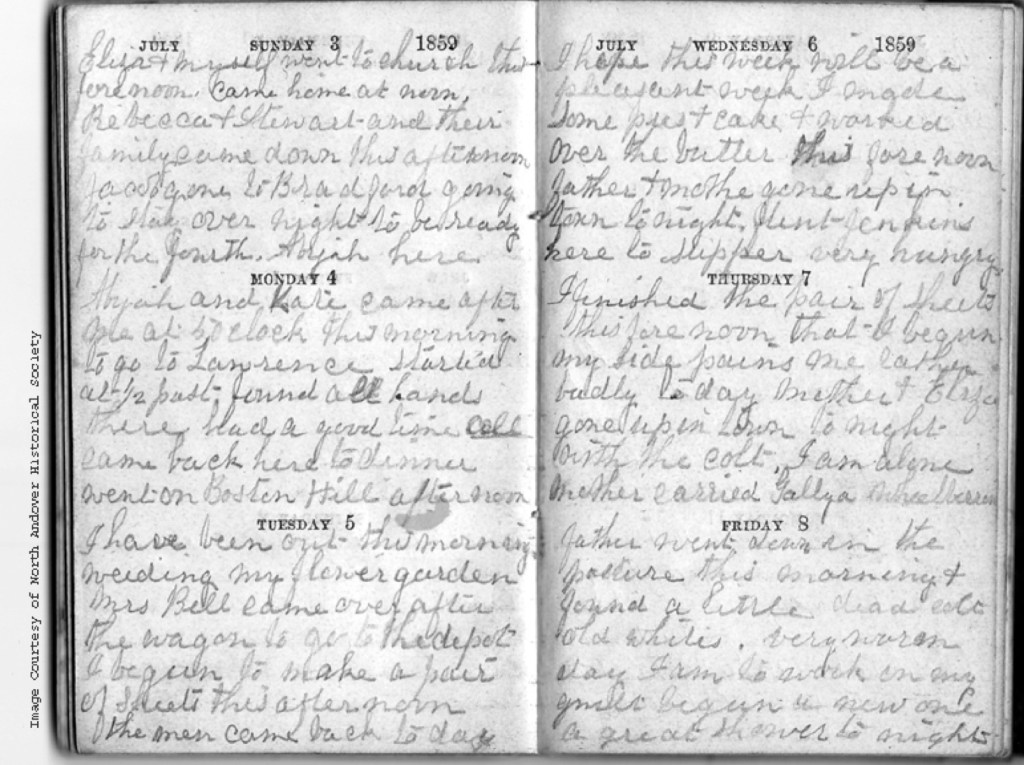 JULY SUNDAY 3 1859
Eliza & myself went to church this
forenoon. Came home at noon.
Rebecca & Stewart and their
family came down this afternoon
Jacob gone to Bradford going
to stay over night to be ready
for the fourth. Abijah here
MONDAY 4
Abijah and Kate came after
me at 5 o'clock this morning
to go to Lawrence started
at ½ past. found all hands
there had a good time all
came back here to dinner
went on Boston Hill afternoon
TUESDAY 5
I have been out this morning
weiding my flower garden
Mrs. Bell came over after
the wagon to go to the depot
I begun to make a pair
of Sheets this afternoon
the men came back to day
JULY WEDNESDAY 6 1859
I hope this week will be a
pleasant week I made
some pies & cake & worked
over the butter this forenoon
father & mothe gone up in
town to night. Flint Jenkins
here to supper very hungry
THURSDAY 7
I finished the pair of sheets
this forenoon that I begun
my side pains me rather
badly to day Mother & Eliza
gone up in town to night
with the colt. I am alone
Mother carried a wheelbarrow
FRIDAY 8
father went down in the
pasture this morning &
found a little dead colt
old whites. very warm
day I am to work on my
quilt begun a new one
a great shower to night
Image Courtesy of North Andover Historical Society